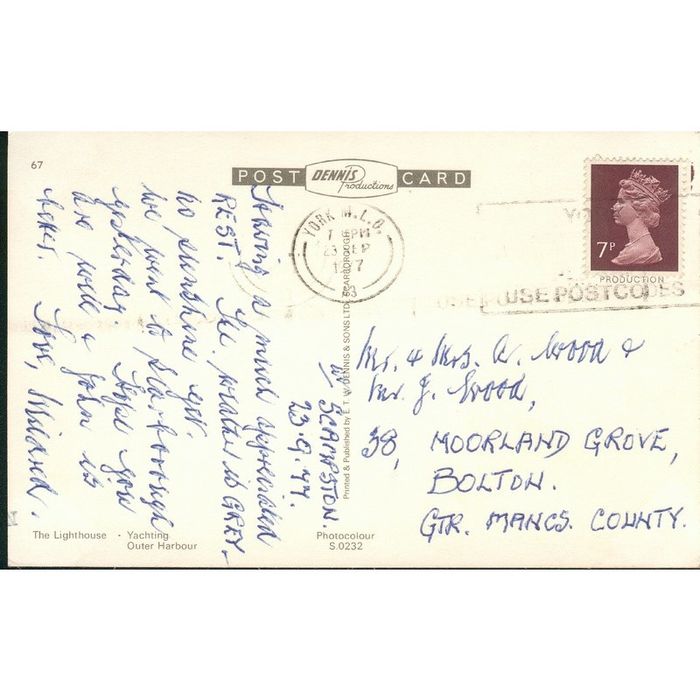 67
POST DENNIS Productions CARD
YORK M.L.O.
PM
23 SEP
1977
83
USE POSTCODES
7P
PRODUCTION
Mr. & Mrs. A. Wood &
Mr. J. Wood,
38, MOORLAND GROVE,
BOLTON.
GTR. MANCS. COUNTY.
SCAMPSTON.
23.9.77.
Having a much appreciated
REST. The water is GREY -
no sunshine yet.
We went to Scarborough
yesterday. Hope you
are well & John is
better. Love,
Printed & Published by E. T. W. DENNIS & SONS LTD. SCARBOROUGH
The Lighthouse · Yachting
Outer Harbour
Photocolour
S.0232